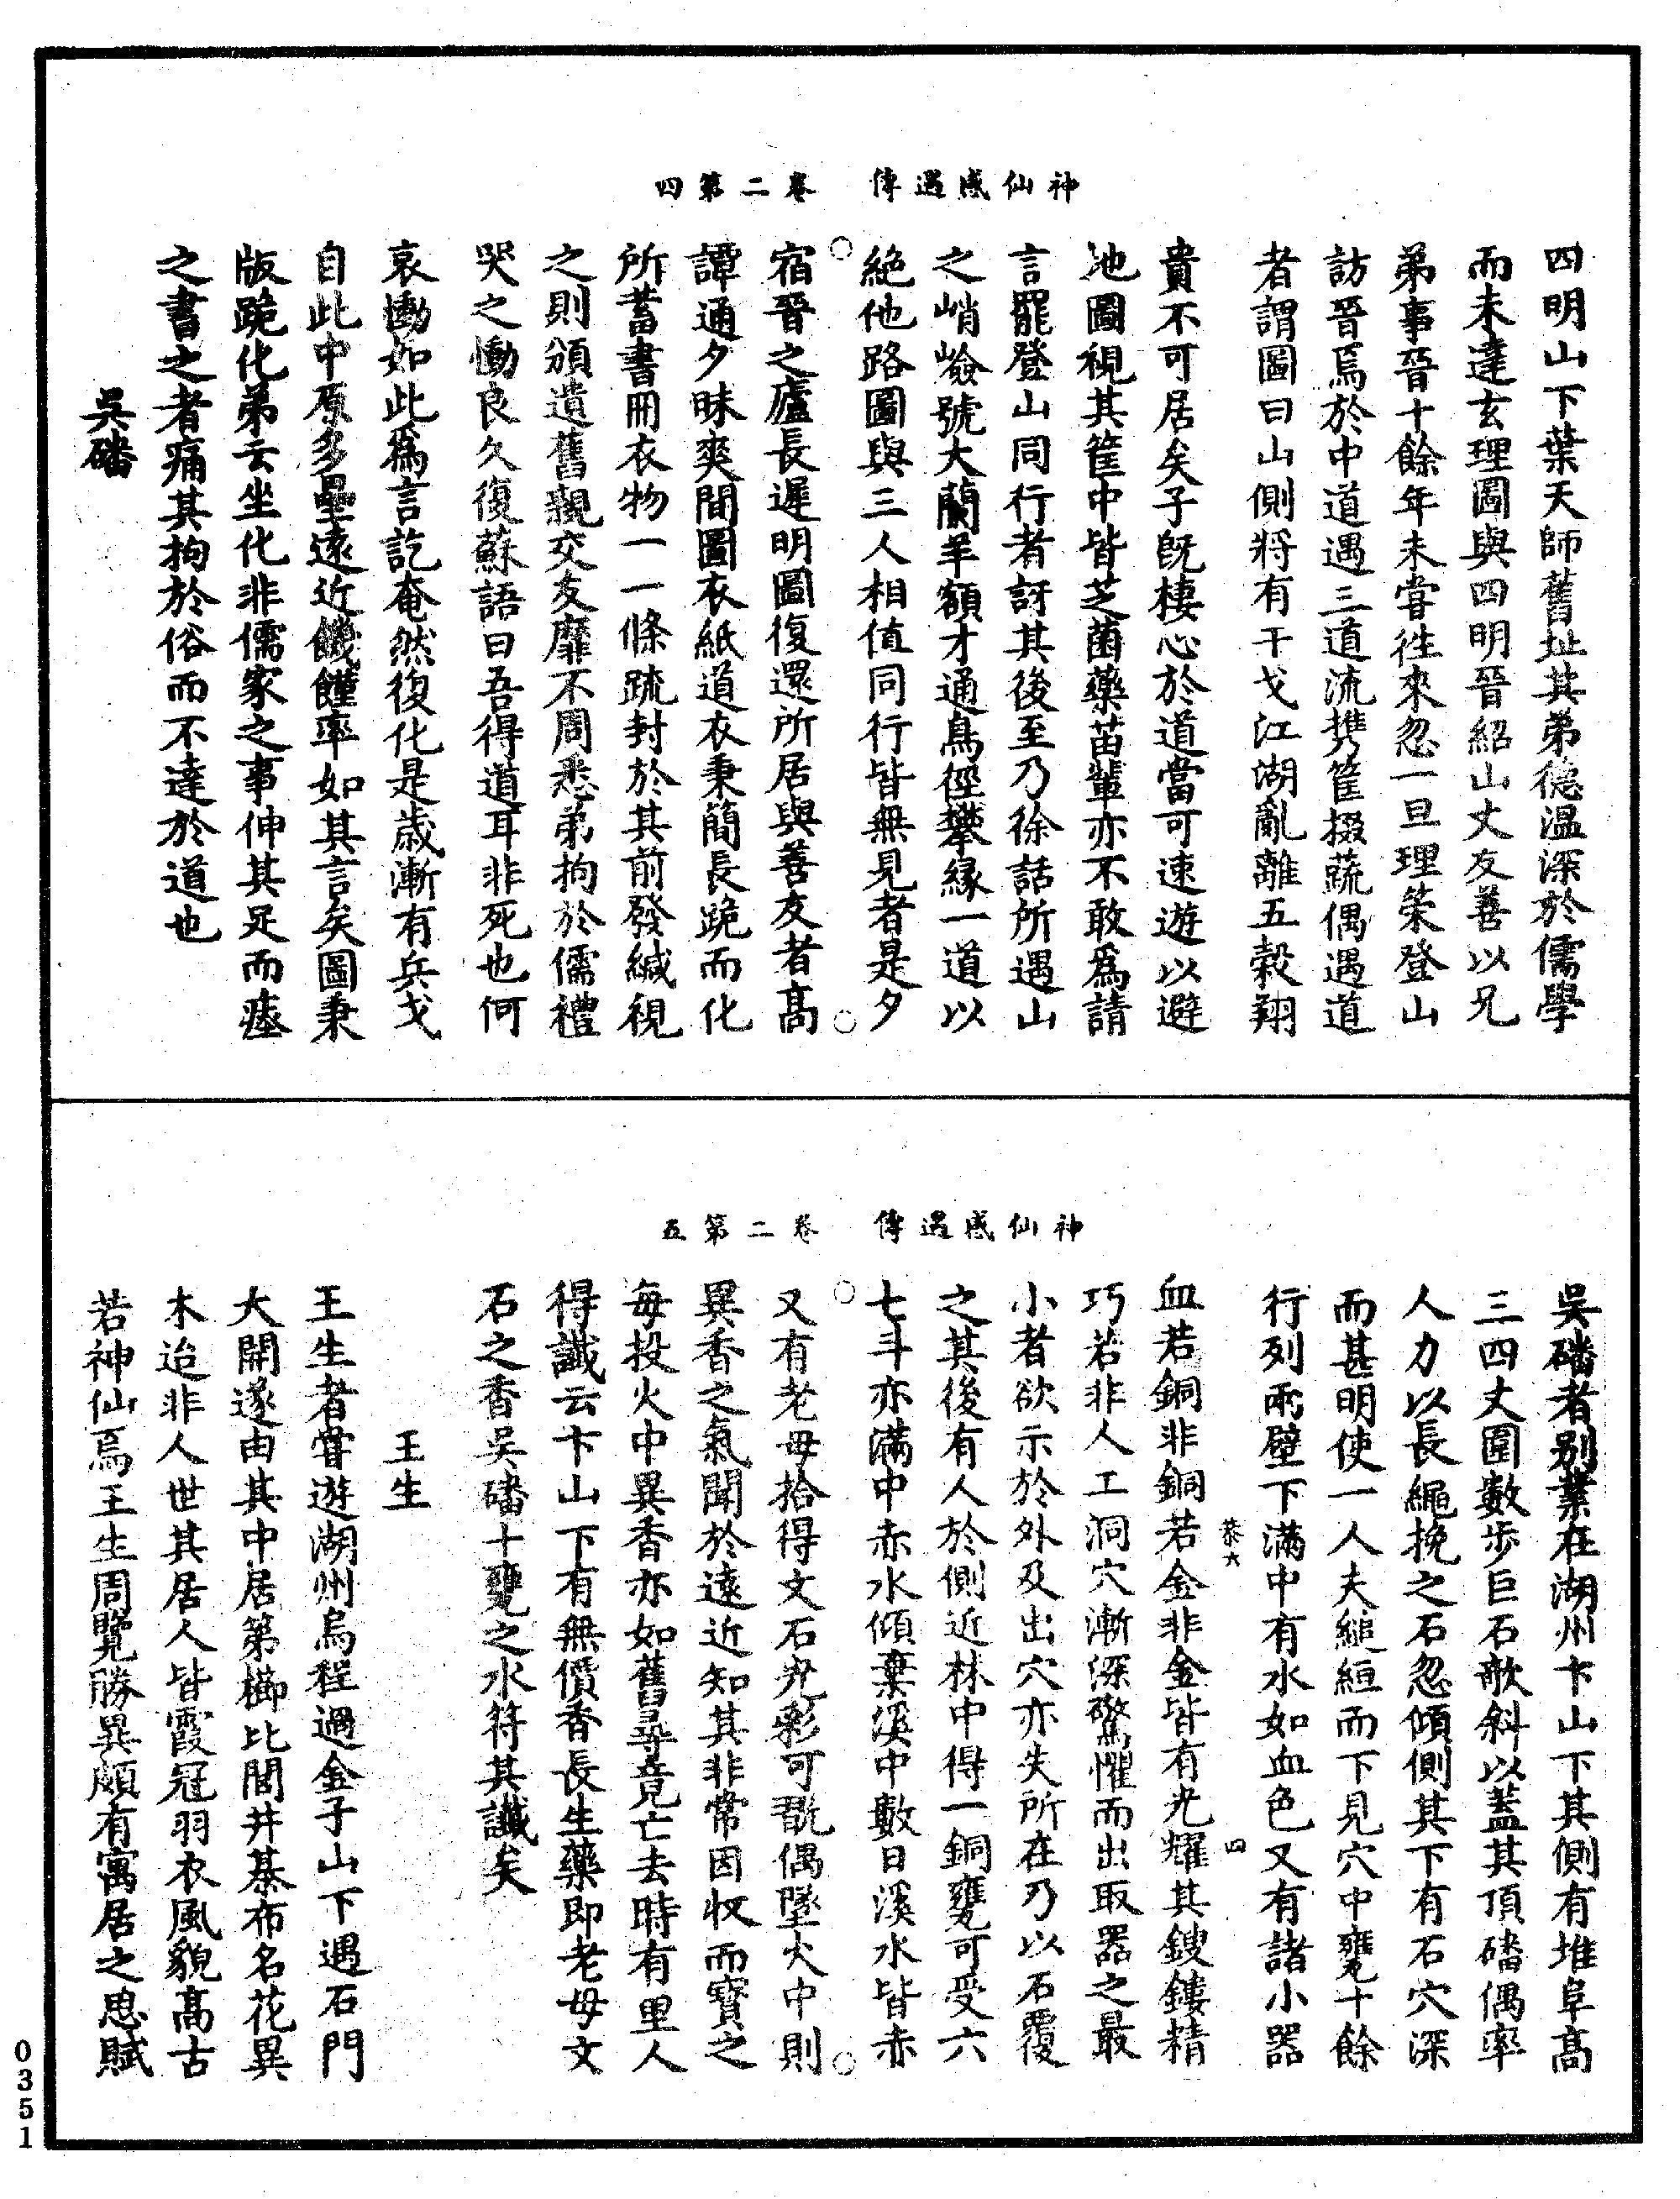 神仙感遇傳　卷二第四
四明山下葉天師舊址其弟德溫深於儒學
而未達玄理圖與四明晉紹山丈友善以兄
弟事晉十餘年未嘗徃來忽一旦理策登山
訪晉焉於中道遇三道流攜筐掇蔬偶遇道
者謂圖曰山側將有干戈江湖亂離五穀翔
貴不可居矣子旣棲心於道當可速遊以避
地圖視其筐中皆芝菌藥苗輩亦不敢爲請
言罷登山同行者訝其後至乃徐話所遇山
之峭嶮號大蘭羊額才通鳥徑攀緣一道以
絶他路圖與三人相值同行皆無見者是夕
宿晉之廬長遲明圖復還所居與善友者高
譚通夕昧爽間圖衣紙道衣秉簡長跪而化
所蓄書冊衣物一一條疏封於其前發緘視
之則頒遺舊親交友靡不周悉弟拘於儒禮
哭之慟良久復蘇語曰吾得道耳非死也何
哀慟如此爲言訖奄然復化是歲漸有兵戈
自此中原多壘遠近饑饉率如其言矣圖秉
版跪化弟云坐化非儒家之事伸其足而瘞
之書之者痛其拘於俗而不達於道也
吳磻
神仙感遇傳　卷二第五
吳磻者別業在湖州卞山下其側有堆阜高
三四丈圍數步巨石欹斜以蓋其頂磻偶率
人力以長繩挽之石忽傾側其下有石穴深
而甚明使一人夫縋絙而下見穴中甕十餘
行列兩壁下滿中有水如血色又有諸小器
恭六　四
血若銅非銅若金非金皆有光耀其鎪鏤精
巧若非人工洞穴漸深驚懼而出取器之最
小者欲示於外及出穴亦失所在乃以石覆
之其後有人於側近林中得一銅甕可受六
七斗亦滿中赤水傾棄溪中數日溪水皆赤
又有老母拾得文石光彩可翫偶墜火中則
異香之氣聞於遠近知其非常因收而寶之
每投火中異香亦如舊尋竟亡去時有里人
得讖云卞山下有無價香長生藥即老母文
石之香吳磻十甕之水符其讖矣
王生
王生者嘗遊湖州烏程過金子山下遇石門
大開遂由其中居第櫛比閭井棊布名花異
木迨非人世其居人皆霞冠羽衣風貌高古
若神仙焉王生周覽勝異頗有寓居之思賦
0351